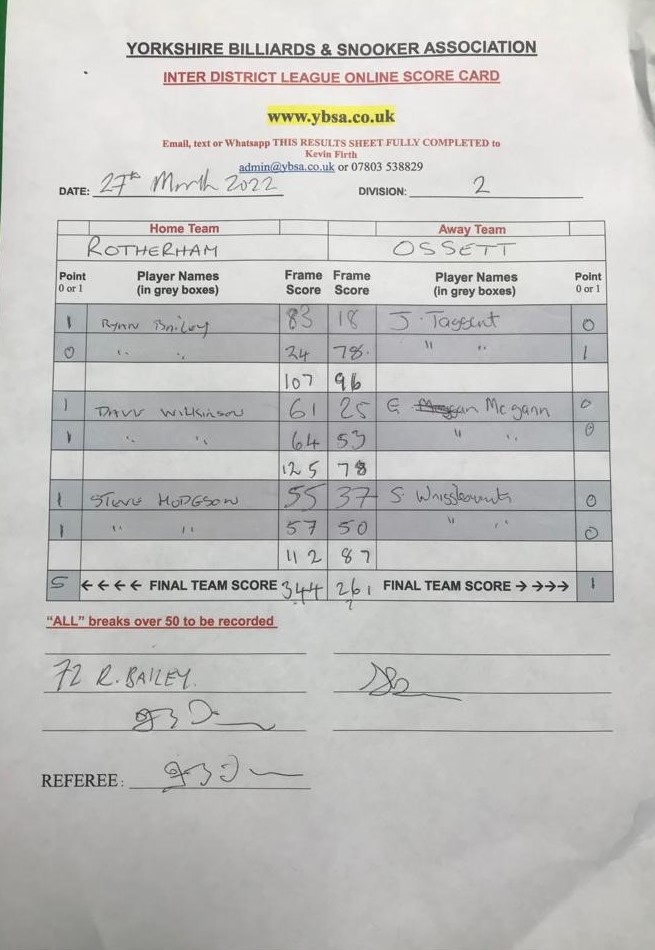 YORKSHIRE BILLIARDS & SNOOKER ASSOCIATION
INTER DISTRICT LEAGUE ONLINE SCORE CARD
www.ybsa.co.uk
Email, text or Whatsapp THIS RESULTS SHEET FULLY COMPLETED to
Kevin Firth
admin@ybsa.co.uk or 07803 538829
DATE: 27th March 2022 DIVISION: 2
Home Team Away Team
ROTHERHAM OSSETT
Point 0 or 1 Player Names (in grey boxes) Frame Score Frame Score Player Names (in grey boxes) Point 0 or 1
1 Ryan Bailey 83 18 J. Taggart 0
0 " " 24 78. " " 1
107 96
1 DAVE WILKINSON 61 25 G. Mc gann 0
1 " " 64 53 " " 0
125 78
1 STEVE HODGSON 55 37 S. 0
1 " " 57 50 " " 0
112 87
5 ←←←← FINAL TEAM SCORE 344 261 FINAL TEAM SCORE →→→→ 1
"ALL" breaks over 50 to be recorded
72 R. BAILEY.
REFEREE: